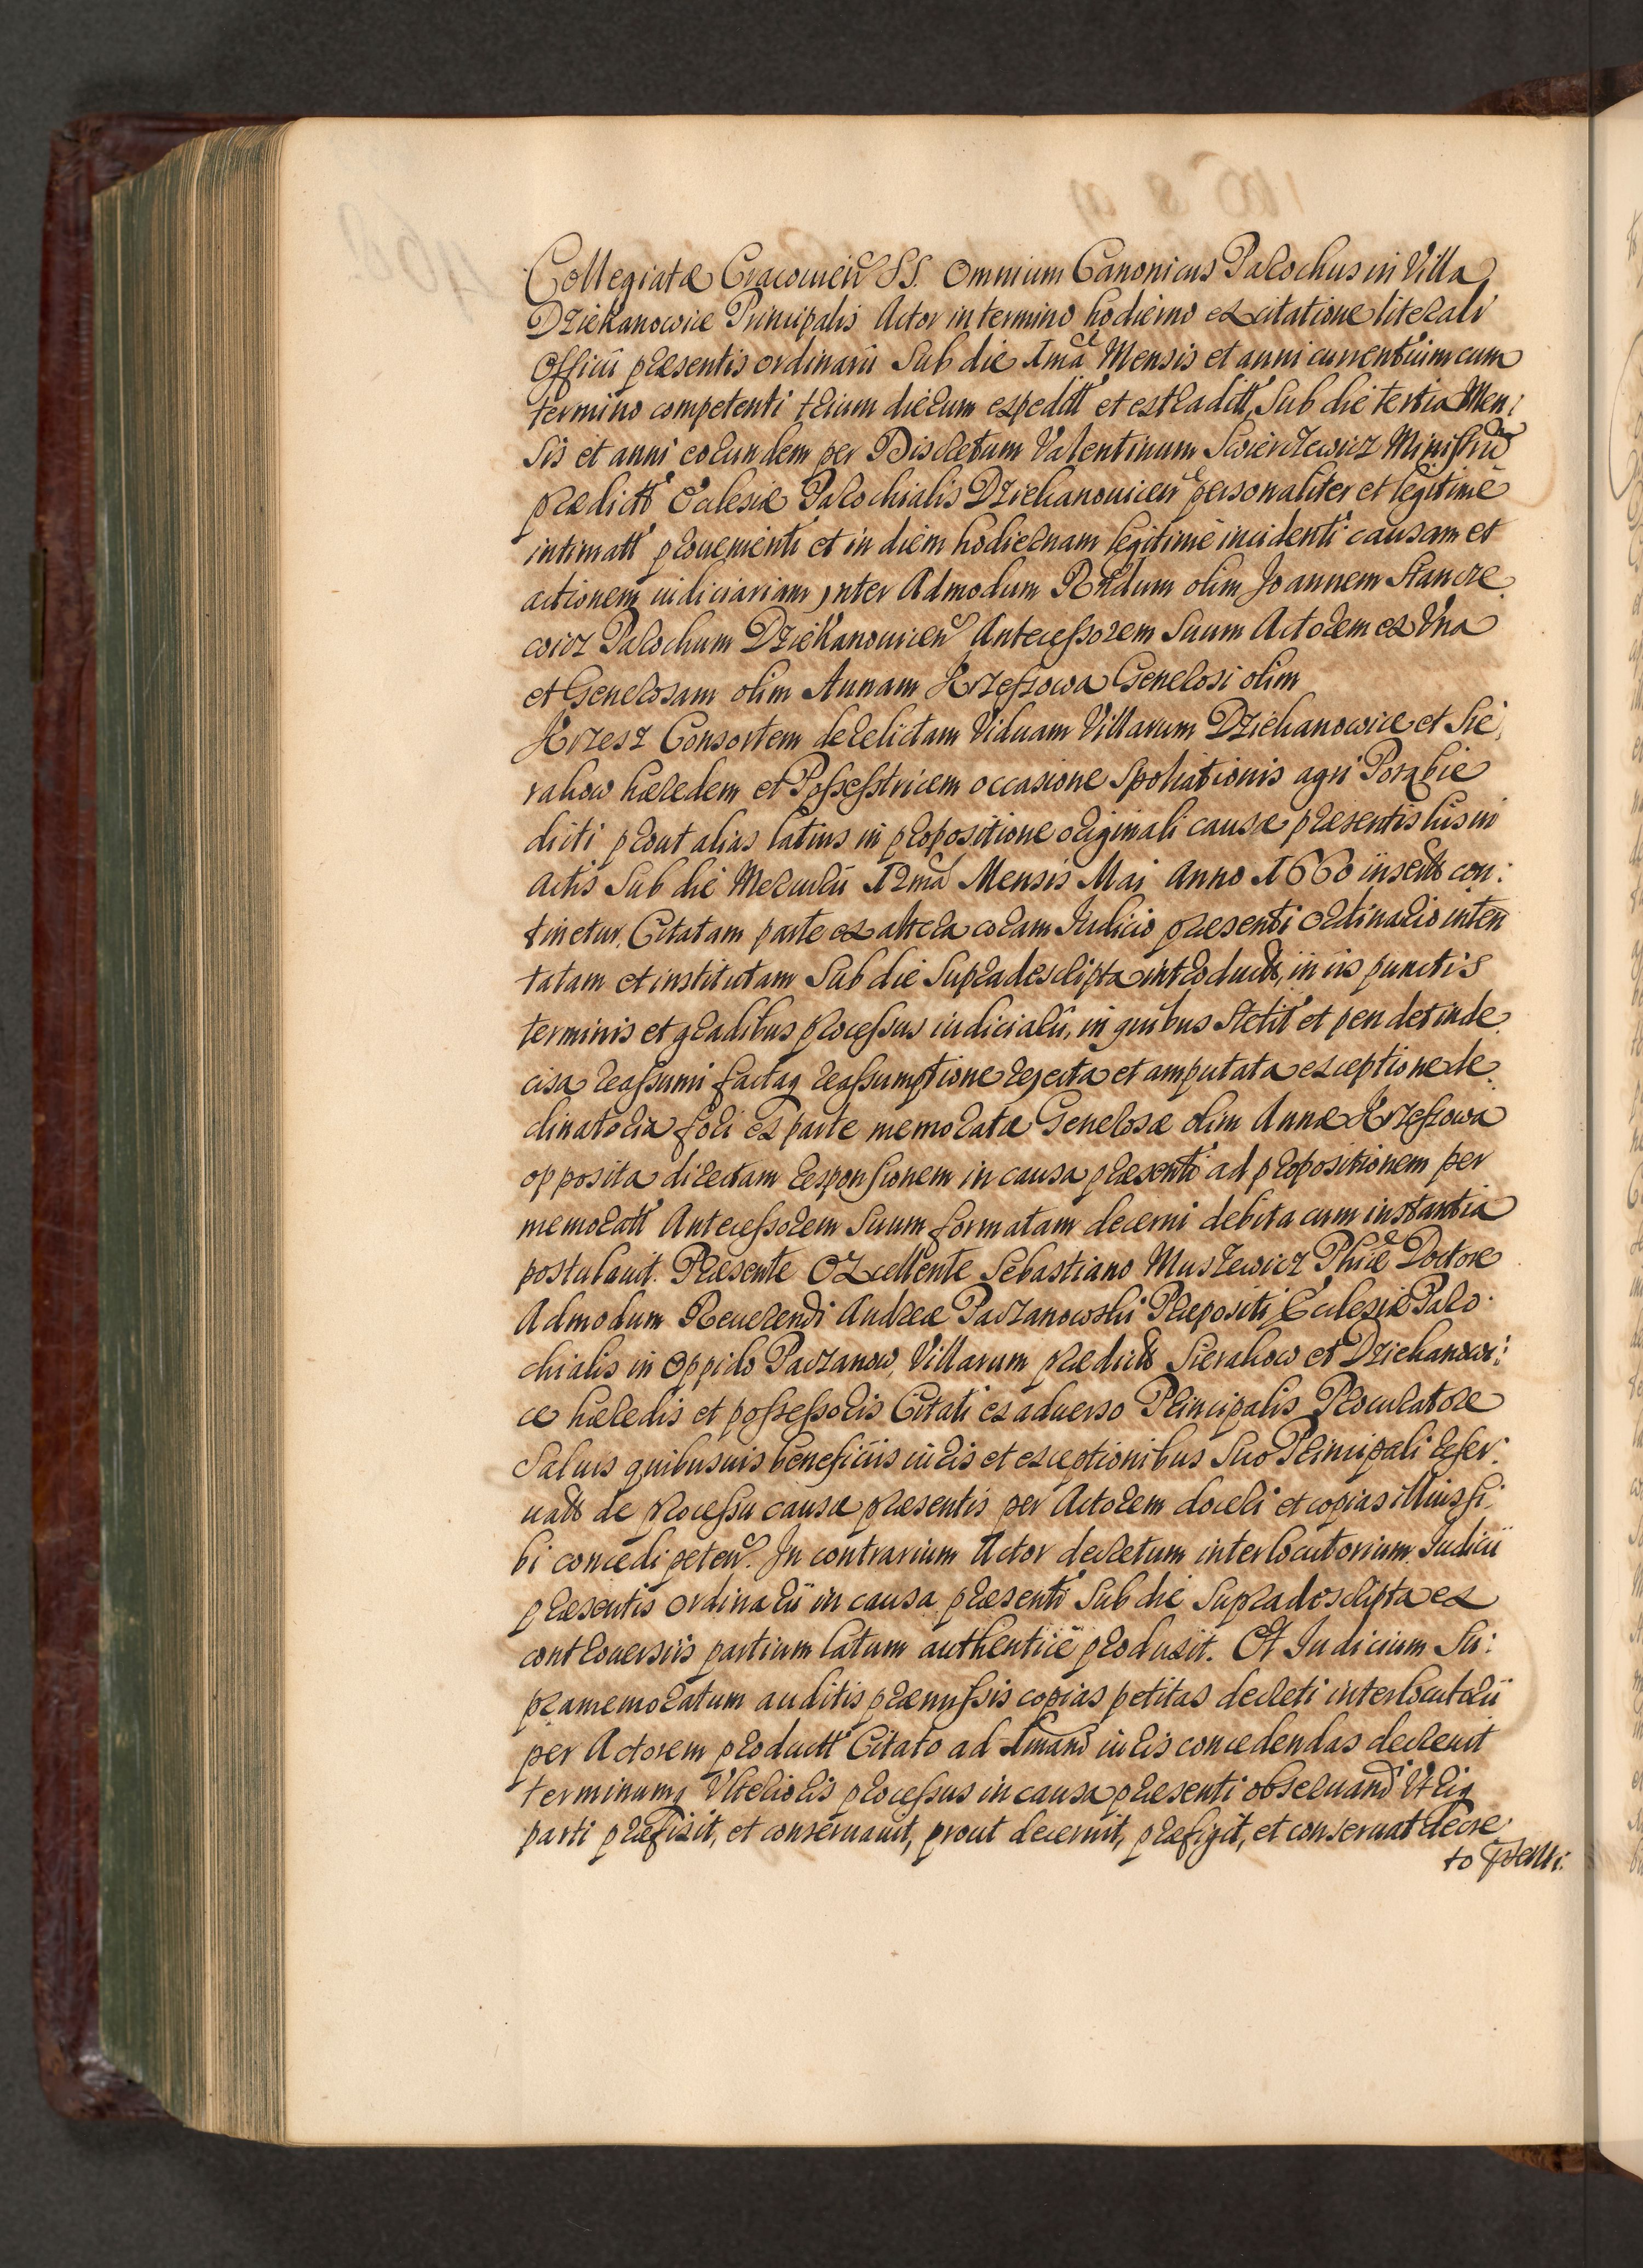 Collegiatæ Cracouien SS. Omnium Canonicus Parochus in Villa
Dziekanowice Principalis Actor in termino hodierno ex citatione literali
Officii præsentis ordinarii Sub die 1mâ Mensis et anni currentium cum
termino competenti trium dierum expeditt et extraditt, Sub die tertia Men:
sis et anni eorundem per Discretum Valentinum Swierczewicz Ministrum
prædictt Eclesiæ Parochialis Dziekanouicen personaliter et legitimè
intimatt prouenienti et in diem hodiernam legitimè incidenti causam et
actionem iudiciariam inter Admodum Rndum olim Joannem Stancze
wicz Parochum Dziekanouicen Antecessorem Suum Actorem ex Vna
et Generosam olim Annam Krzeszowa Generosi olim
Krzesz Consortem derelictam Viduam Villarum Dziekanowice et Sie
rakow hæredem et Possestricem occasione Spoliationis agri Porąbie
dicti prout alias latius in propositione originali causæ præsentis his in
Actis Sub die Mercurii 12mâ Mensis Mai Anno 1660 insertt con:
tinetur, Citatam parte ex altera coram Iudicio præsenti Ordinario inten
tatam et institutam Sub die Supradescripta introductt, in iis punctis
terminis et gradibus processus iudiciarii, in quibus Stetit et pendet inde
cisa reassumi factaq reassumptione rejecta et amputata exceptione de
clinatoria fori ex parte memoratæ Generosæ olim Annæ Krzeszowa
opposita directam responsionem in causa præsenti ad propositionem per
memoratt Antecessorem Suum formatam decerni debita cum instantia
postulauit. Præsente Excellente Sebastiano Muszewicz Phiæ Doctore
Admodum Reuerendi Andreæ Paczanowski Præpositi Eclesiæ Paro
chialis in Oppido Paczanow, Villarum prædictt Sierakow et Dziekanowi:
ce hæredis et possessoris Citati ex aduerso Principalis Procuratore
Saluis quibusuis beneficiis iuris et exceptionibus Suo Principali reser:
uatt de processu causæ præsentis per Actorem doceri et copias illius si
bi concedi peten. In contrarium Actor decretum interlocutorium Iudicii
præsentis Ordinarii in causa præsenti Sub die Supradescripta ex
controuersiis partium latum authenticè produxit. Et Iudicium Su:
pramemoratum auditis præmissis copias petitas decreti interlocutorii
per Actorem productt Citato ad iuris concedendas decreuit
terminumq Vlterioris processus in causa præsenti obseruand Vtriq
parti præfixit, et conseruauit, prout decernit, præfigit, et conseruat decre
to